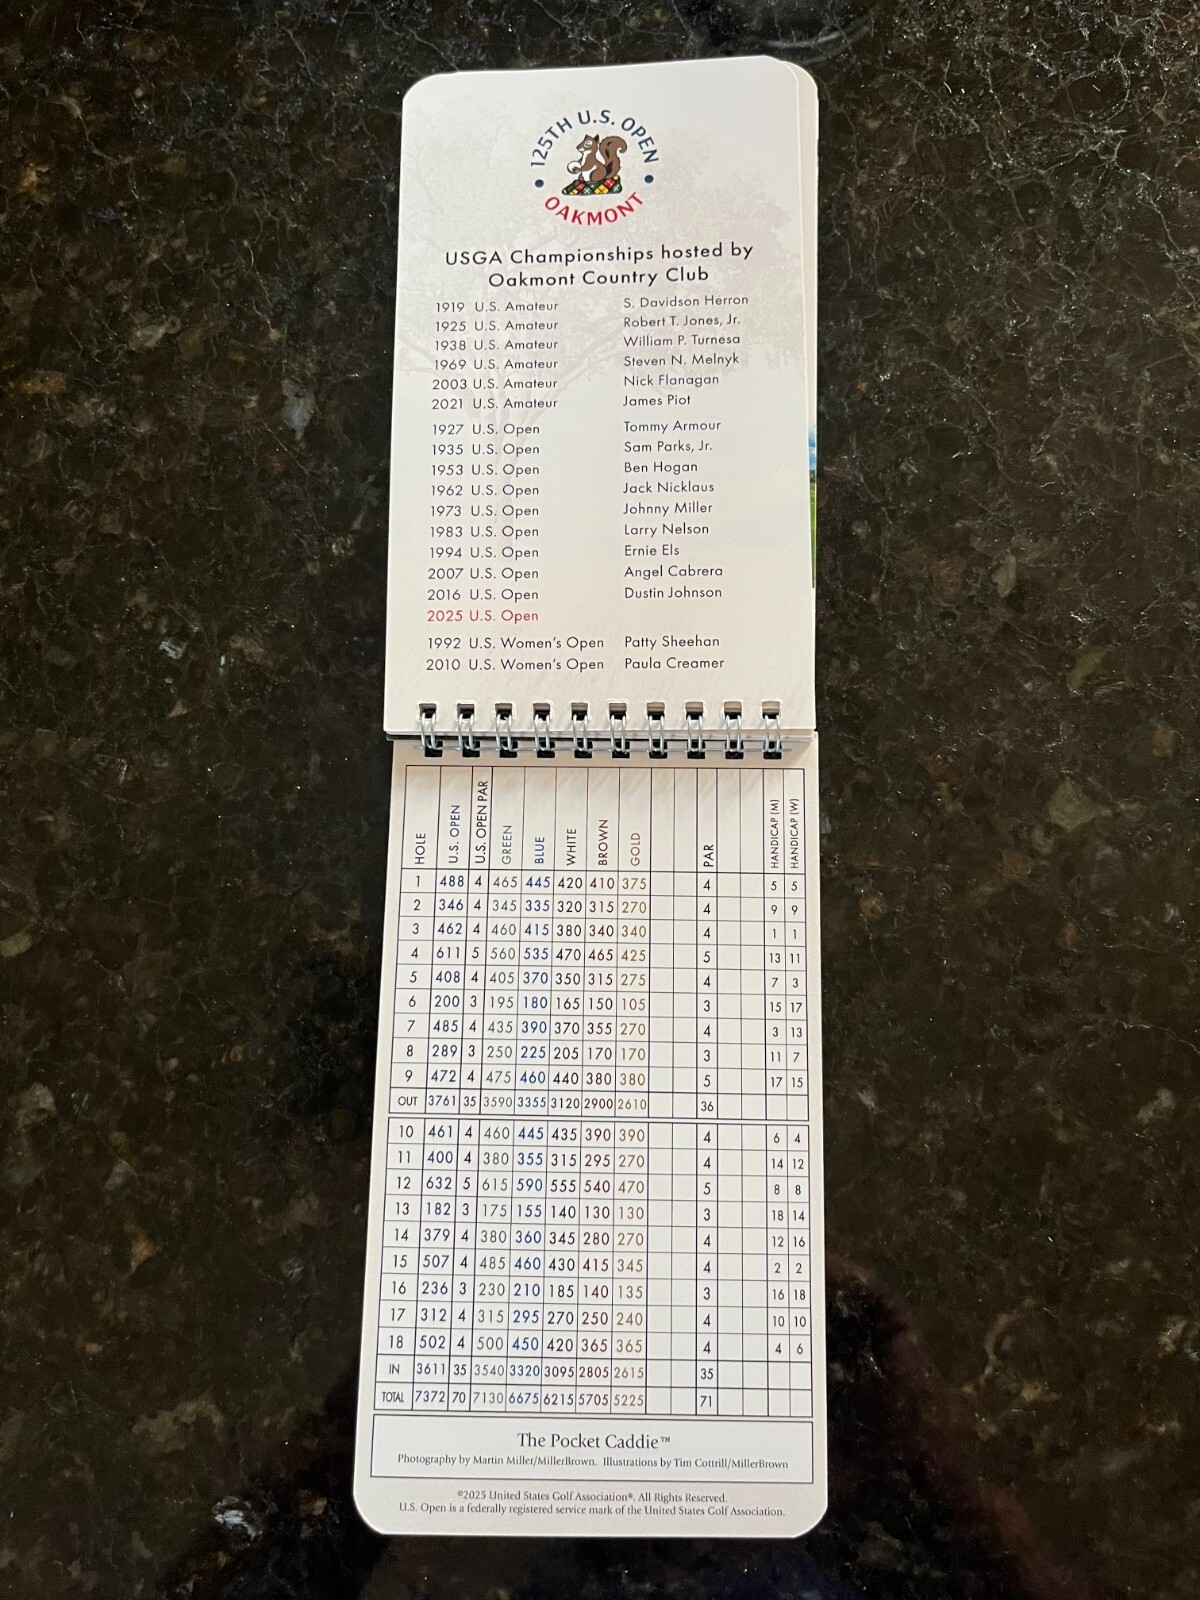 125TH U.S. OPEN
OAKMONT
USGA Championships hosted by
Oakmont Country Club
1919 U.S. Amateur S. Davidson Herron
1925 U.S. Amateur Robert T. Jones, Jr.
1938 U.S. Amateur William P. Turnesa
1969 U.S. Amateur Steven N. Melnyk
2003 U.S. Amateur Nick Flanagan
2021 U.S. Amateur James Piot
1927 U.S. Open Tommy Armour
1935 U.S. Open Sam Parks, Jr.
1953 U.S. Open Ben Hogan
1962 U.S. Open Jack Nicklaus
1973 U.S. Open Johnny Miller
1983 U.S. Open Larry Nelson
1994 U.S. Open Ernie Els
2007 U.S. Open Angel Cabrera
2016 U.S. Open Dustin Johnson
2025 U.S. Open
1992 U.S. Women's Open Patty Sheehan
2010 U.S. Women's Open Paula Creamer
HOLE U.S. OPEN U.S. OPEN PAR GREEN BLUE WHITE BROWN GOLD PAR HANDICAP (M) HANDICAP (W)
1 488 4 465 445 420 410 375 4 5 5
2 346 4 345 335 320 315 270 4 9 9
3 462 4 460 415 380 340 340 4 1 1
4 611 5 560 535 470 465 425 5 13 11
5 408 4 405 370 350 315 275 4 7 3
6 200 3 195 180 165 150 105 3 15 17
7 485 4 435 390 370 355 270 4 3 13
8 289 3 250 225 205 170 170 3 11 7
9 472 4 475 460 440 380 380 5 17 15
OUT 3761 35 3590 3355 3120 2900 2610 36
10 461 4 460 445 435 390 390 4 6 4
11 400 4 380 355 315 295 270 4 14 12
12 632 5 615 590 555 540 470 5 8 8
13 182 3 175 155 140 130 130 3 18 14
14 379 4 380 360 345 280 270 4 12 16
15 507 4 485 460 430 415 345 4 2 2
16 236 3 230 210 185 140 135 3 16 18
17 312 4 315 295 270 250 240 4 10 10
18 502 4 500 450 420 365 365 4 4 6
IN 3611 35 3540 3320 3095 2805 2615 35
TOTAL 7372 70 7130 6675 6215 5705 5225 71
The Pocket Caddie™
Photography by Martin Miller/MillerBrown. Illustrations by Tim Cottrill/MillerBrown
©2025 United States Golf Association®. All Rights Reserved.
U.S. Open is a federally registered service mark of the United States Golf Association.